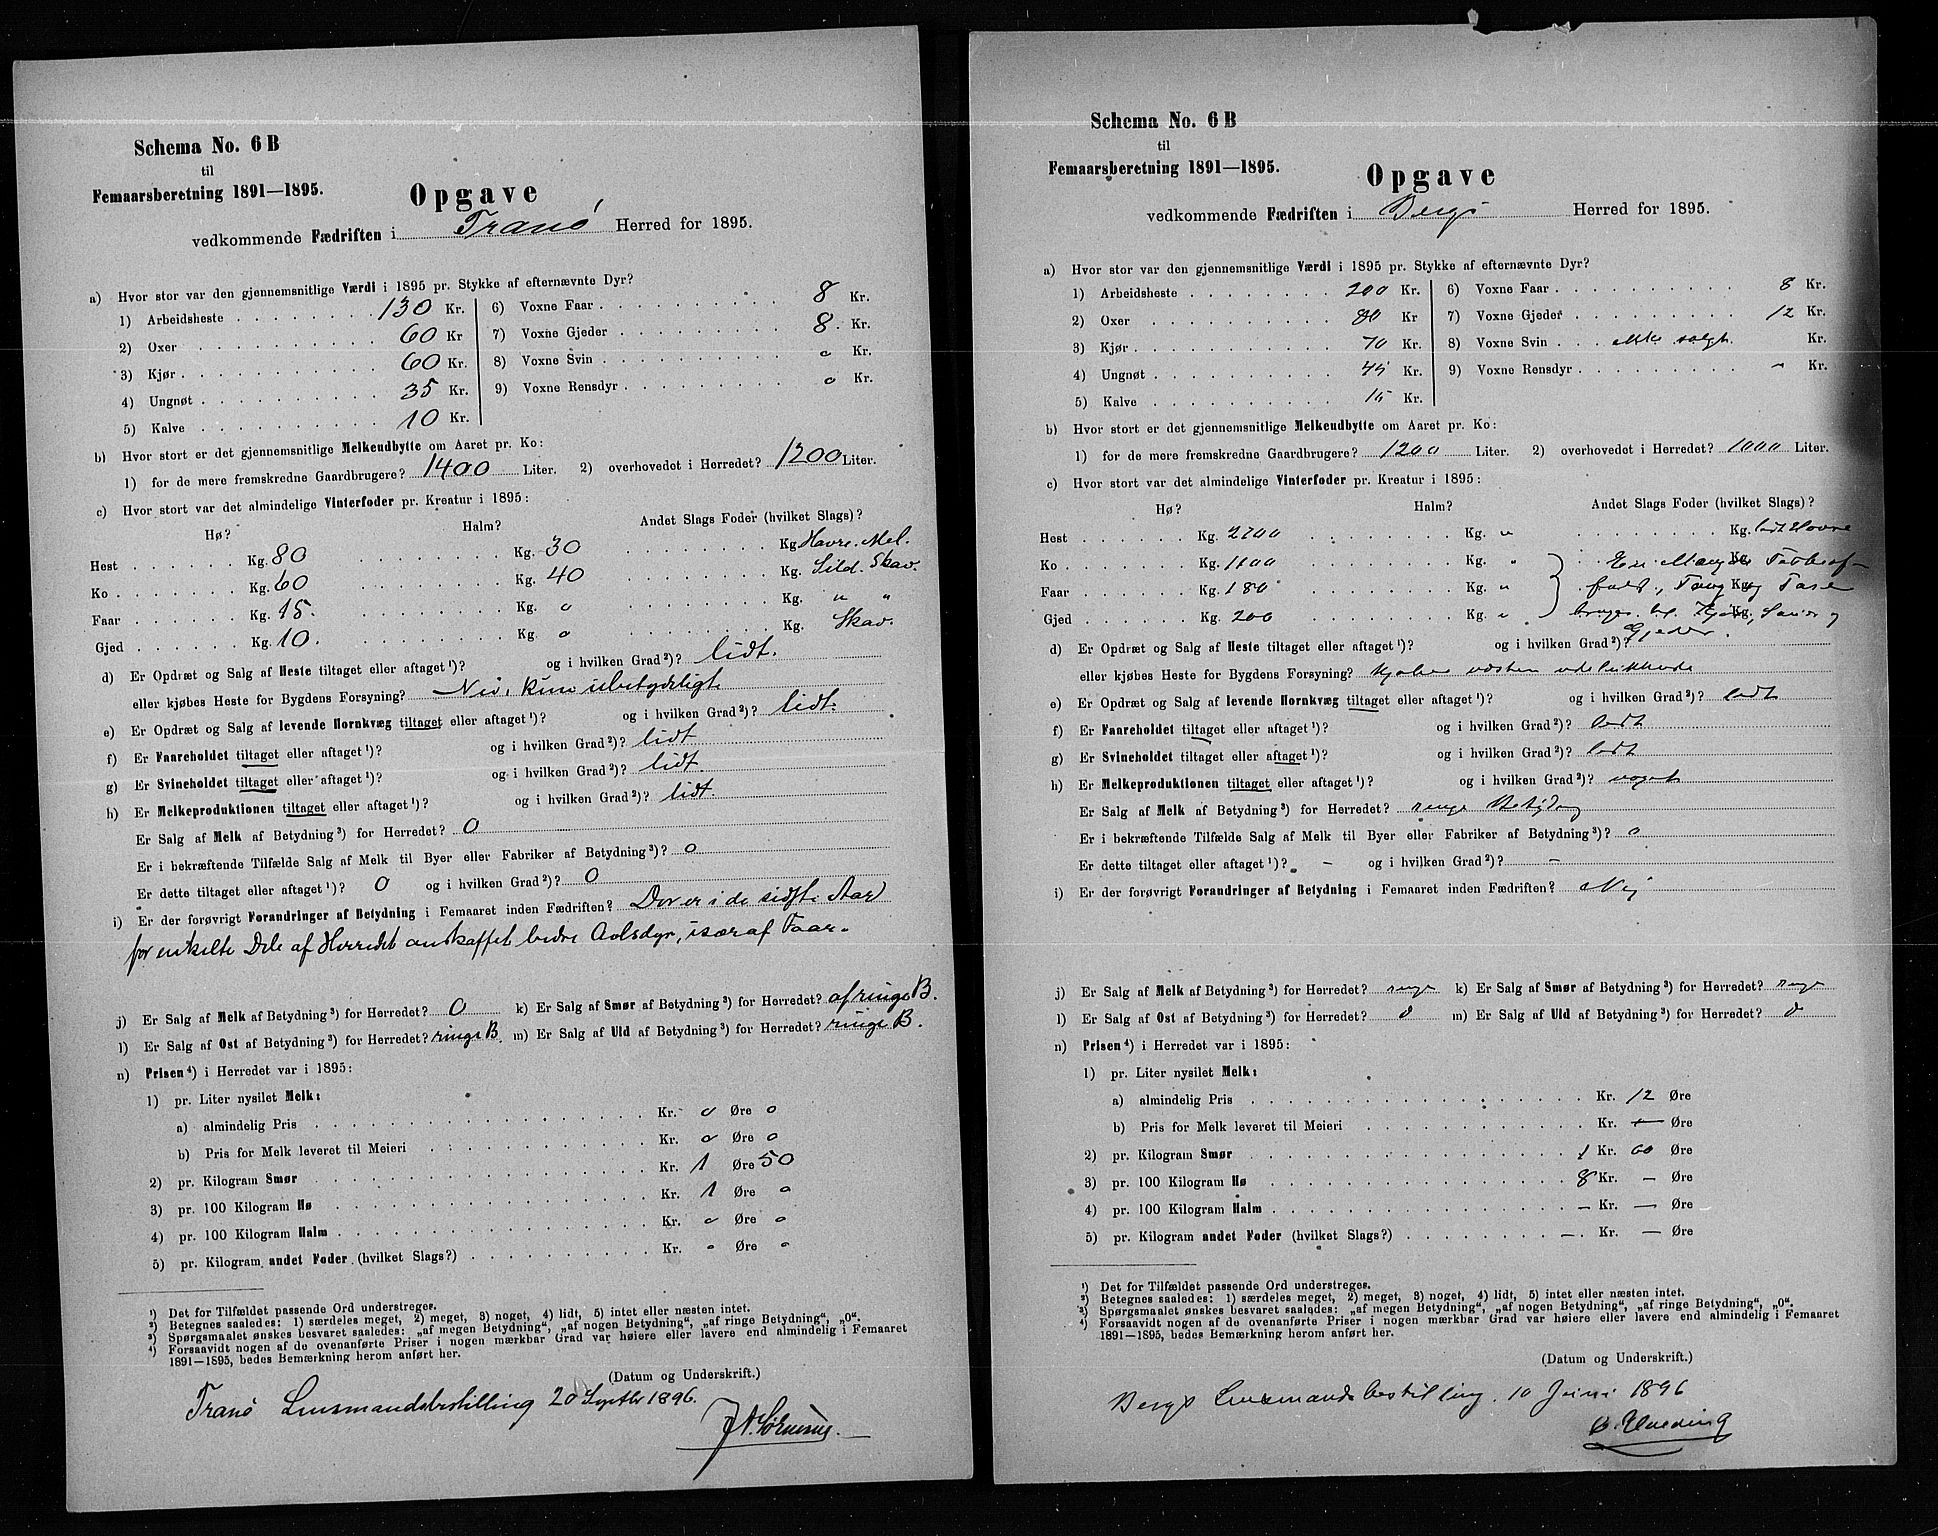 Schema No. 6 B
til
Femaarsberetning 1891—1895.
Opgave
vedkommende Fædriften i Tranö Herred for 1895.
a) Hvor stor var den gjennemsnitlige Værdi i 1895 pr. Stykke af efternævnte Dyr?
1) Arbeidsheste 130 Kr. 6) Voxne Faar 8 Kr.
2) Oxer 60 Kr 7) Voxne Gjeder 8. Kr.
3) Kjør 60 Kr. 8) Voxne Svin o Kr.
4) Ungnøt 35 Kr. 9) Voxne Rensdyr o Kr.
5) Kalve 10 Kr.
b) Hvor stort er det gjennemsnitlige Melkeudbytte om Aaret pr. Ko:
1) for de mere fremskredne Gaardbrugere? 1400 Liter. 2) overhovedet i Herredet? 1200 Liter.
c) Hvor stort var det almindelige Vinterfoder pr. Kreatur i 1895:
Hø? Halm? Andet Slags Foder (hvilket Slags)?
Hest Kg. 80 Kg. 30 Kg. Havre. Mel.
Ko Kg. 60 Kg. 40 Kg. Sild. Skav.
Faar Kg. 15. Kg. o Kg. " "
Gjed Kg. 10. Kg. o Kg. Skav.
d) Er Opdræt og Salg af Heste tiltaget eller aftaget ¹)? og i hvilken Grad ²)? lidt.
eller kjøbes Heste for Bygdens Forsyning? Nei, kun ubetydeligt
e) Er Opdræt og Salg af levende Hornkvæg tiltaget eller aftaget ¹)? og i hvilken Grad ²)? lidt.
f) Er Faareholdet tiltaget eller aftaget ¹)? og i hvilken Grad ²)? lidt
g) Er Svineholdet tiltaget eller aftaget ¹)? og i hvilken Grad ²)? lidt
h) Er Melkeproduktionen tiltaget eller aftaget ¹)? og i hvilken Grad ²)? lidt.
Er Salg af Melk af Betydning ³) for Herredet? 0
Er i bekræftende Tilfælde Salg af Melk til Byer eller Fabriker af Betydning ³)? o
Er dette tiltaget eller aftaget ¹)? 0 og i hvilken Grad ²)? 0
i) Er der forøvrigt Forandringer af Betydning i Femaaret inden Fædriften? Der er i de sidste Aar
for enkelte Dele af Herredet anskaffet bedre Avlsdyr, især af Faar.
j) Er Salg af Melk af Betydning ³) for Herredet? 0 k) Er Salg af Smør af Betydning ³) for Herredet? af ringe B.
l) Er Salg af Ost af Betydning ³) for Herredet? ringe B. m) Er Salg af Uld af Betydning ³) for Herredet? ringe B.
n) Prisen ⁴) i Herredet var i 1895:
1) pr. Liter nysilet Melk:
a) almindelig Pris Kr. o Øre o
b) Pris for Melk leveret til Meieri Kr. o Øre o
2) pr. Kilogram Smør Kr. 1 Øre 50
3) pr. 100 Kilogram Hø Kr. 1 Øre o
4) pr. 100 Kilogram Halm Kr. o Øre o
5) pr. Kilogram andet Foder (hvilket Slags?) Kr. o Øre o
¹) Det for Tilfældet passende Ord understreges.
²) Betegnes saaledes: 1) særdeles meget, 2) meget, 3) noget, 4) lidt, 5) intet eller næsten intet.
³) Spørgsmaalet ønskes besvaret saaledes: „af megen Betydning“, „af nogen Betydning“, „af ringe Betydning“, „0“.
⁴) Forsaavidt nogen af de ovenanførte Priser i nogen mærkbar Grad var høiere eller lavere end almindelig i Femaaret
1891—1895, bedes Bemærkning herom anført her.
(Datum og Underskrift.)
Tranö Lensmandsbestilling 20 Septbr 1896.
Schema No. 6 B
til
Femaarsberetning 1891—1895.
Opgave
vedkommende Fædriften i Bergs Herred for 1895.
a) Hvor stor var den gjennemsnitlige Værdi i 1895 pr. Stykke af efternævnte Dyr?
1) Arbeidsheste 200 Kr. 6) Voxne Faar 8 Kr.
2) Oxer 80 Kr 7) Voxne Gjeder 12 Kr.
3) Kjør 70 Kr. 8) Voxne Svin ikke solgt. Kr.
4) Ungnøt 45 Kr. 9) Voxne Rensdyr " Kr.
5) Kalve 15 Kr.
b) Hvor stort er det gjennemsnitlige Melkeudbytte om Aaret pr. Ko:
1) for de mere fremskredne Gaardbrugere? 1200 Liter. 2) overhovedet i Herredet? 1000 Liter.
c) Hvor stort var det almindelige Vinterfoder pr. Kreatur i 1895:
Hø? Halm? Andet Slags Foder (hvilket Slags)?
Hest Kg. 2700 Kg. " Kg. lidt Havre
Ko Kg. 1100 Kg. " Kg. En Mængde Fiskeaf-
Faar Kg. 180 Kg. " Kg. fald, Tang og Tare
Gjed Kg. 200 Kg. " Kg. bruges til Kjør, Sauer og
Gjeder.
d) Er Opdræt og Salg af Heste tiltaget eller aftaget ¹)? og i hvilken Grad ²)?
eller kjøbes Heste for Bygdens Forsyning? Kjøbes næsten udelukkende
e) Er Opdræt og Salg af levende Hornkvæg tiltaget eller aftaget ¹)? og i hvilken Grad ²)? lidt
f) Er Faareholdet tiltaget eller aftaget ¹)? og i hvilken Grad ²)? lidt
g) Er Svineholdet tiltaget eller aftaget ¹)? og i hvilken Grad ²)? lidt
h) Er Melkeproduktionen tiltaget eller aftaget ¹)? og i hvilken Grad ²)? noget
Er Salg af Melk af Betydning ³) for Herredet? ringe Betydng
Er i bekræftende Tilfælde Salg af Melk til Byer eller Fabriker af Betydning ³)? o
Er dette tiltaget eller aftaget ¹)? – og i hvilken Grad ²)? –
i) Er der forøvrigt Forandringer af Betydning i Femaaret inden Fædriften? Nej
j) Er Salg af Melk af Betydning ³) for Herredet? ringe k) Er Salg af Smør af Betydning ³) for Herredet? ringe
l) Er Salg af Ost af Betydning ³) for Herredet? 0 m) Er Salg af Uld af Betydning ³) for Herredet? 0
n) Prisen ⁴) i Herredet var i 1895:
1) pr. Liter nysilet Melk:
a) almindelig Pris Kr. 12 Øre
b) Pris for Melk leveret til Meieri Kr. — Øre
2) pr. Kilogram Smør 1 Kr. 60 Øre
3) pr. 100 Kilogram Hø 8 Kr. — Øre
4) pr. 100 Kilogram Halm — Kr. — Øre
5) pr. Kilogram andet Foder (hvilket Slags?) — Kr. — Øre
¹) Det for Tilfældet passende Ord understreges.
²) Betegnes saaledes: 1) særdeles meget, 2) meget, 3) noget, 4) lidt, 5) intet eller næsten intet.
³) Spørgsmaalet ønskes besvaret saaledes: „af megen Betydning“, „af nogen Betydning“, „af ringe Betydning“, „0“.
⁴) Forsaavidt nogen af de ovenanførte Priser i nogen mærkbar Grad var høiere eller lavere end almindelig i Femaaret
1891—1895, bedes Bemærkning herom anført her.
(Datum og Underskrift.)
Bergs Lensmandsbestilling. 10 Juni 1896